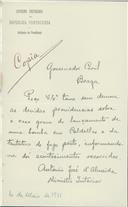 GOVERNO PROVISORIO
DA
REPUBLICA PORTUGUEZA
Copia
Governador Civil
Braga
Peço V. Exª tome sem demora
as devidas providencias sobre
o caso grave do lançamento de
uma bomba em Padella e da
tentativa de fogo posto, informando-
me do acontecimento
Antonio José d'Almeida
Ministro Interior
1911